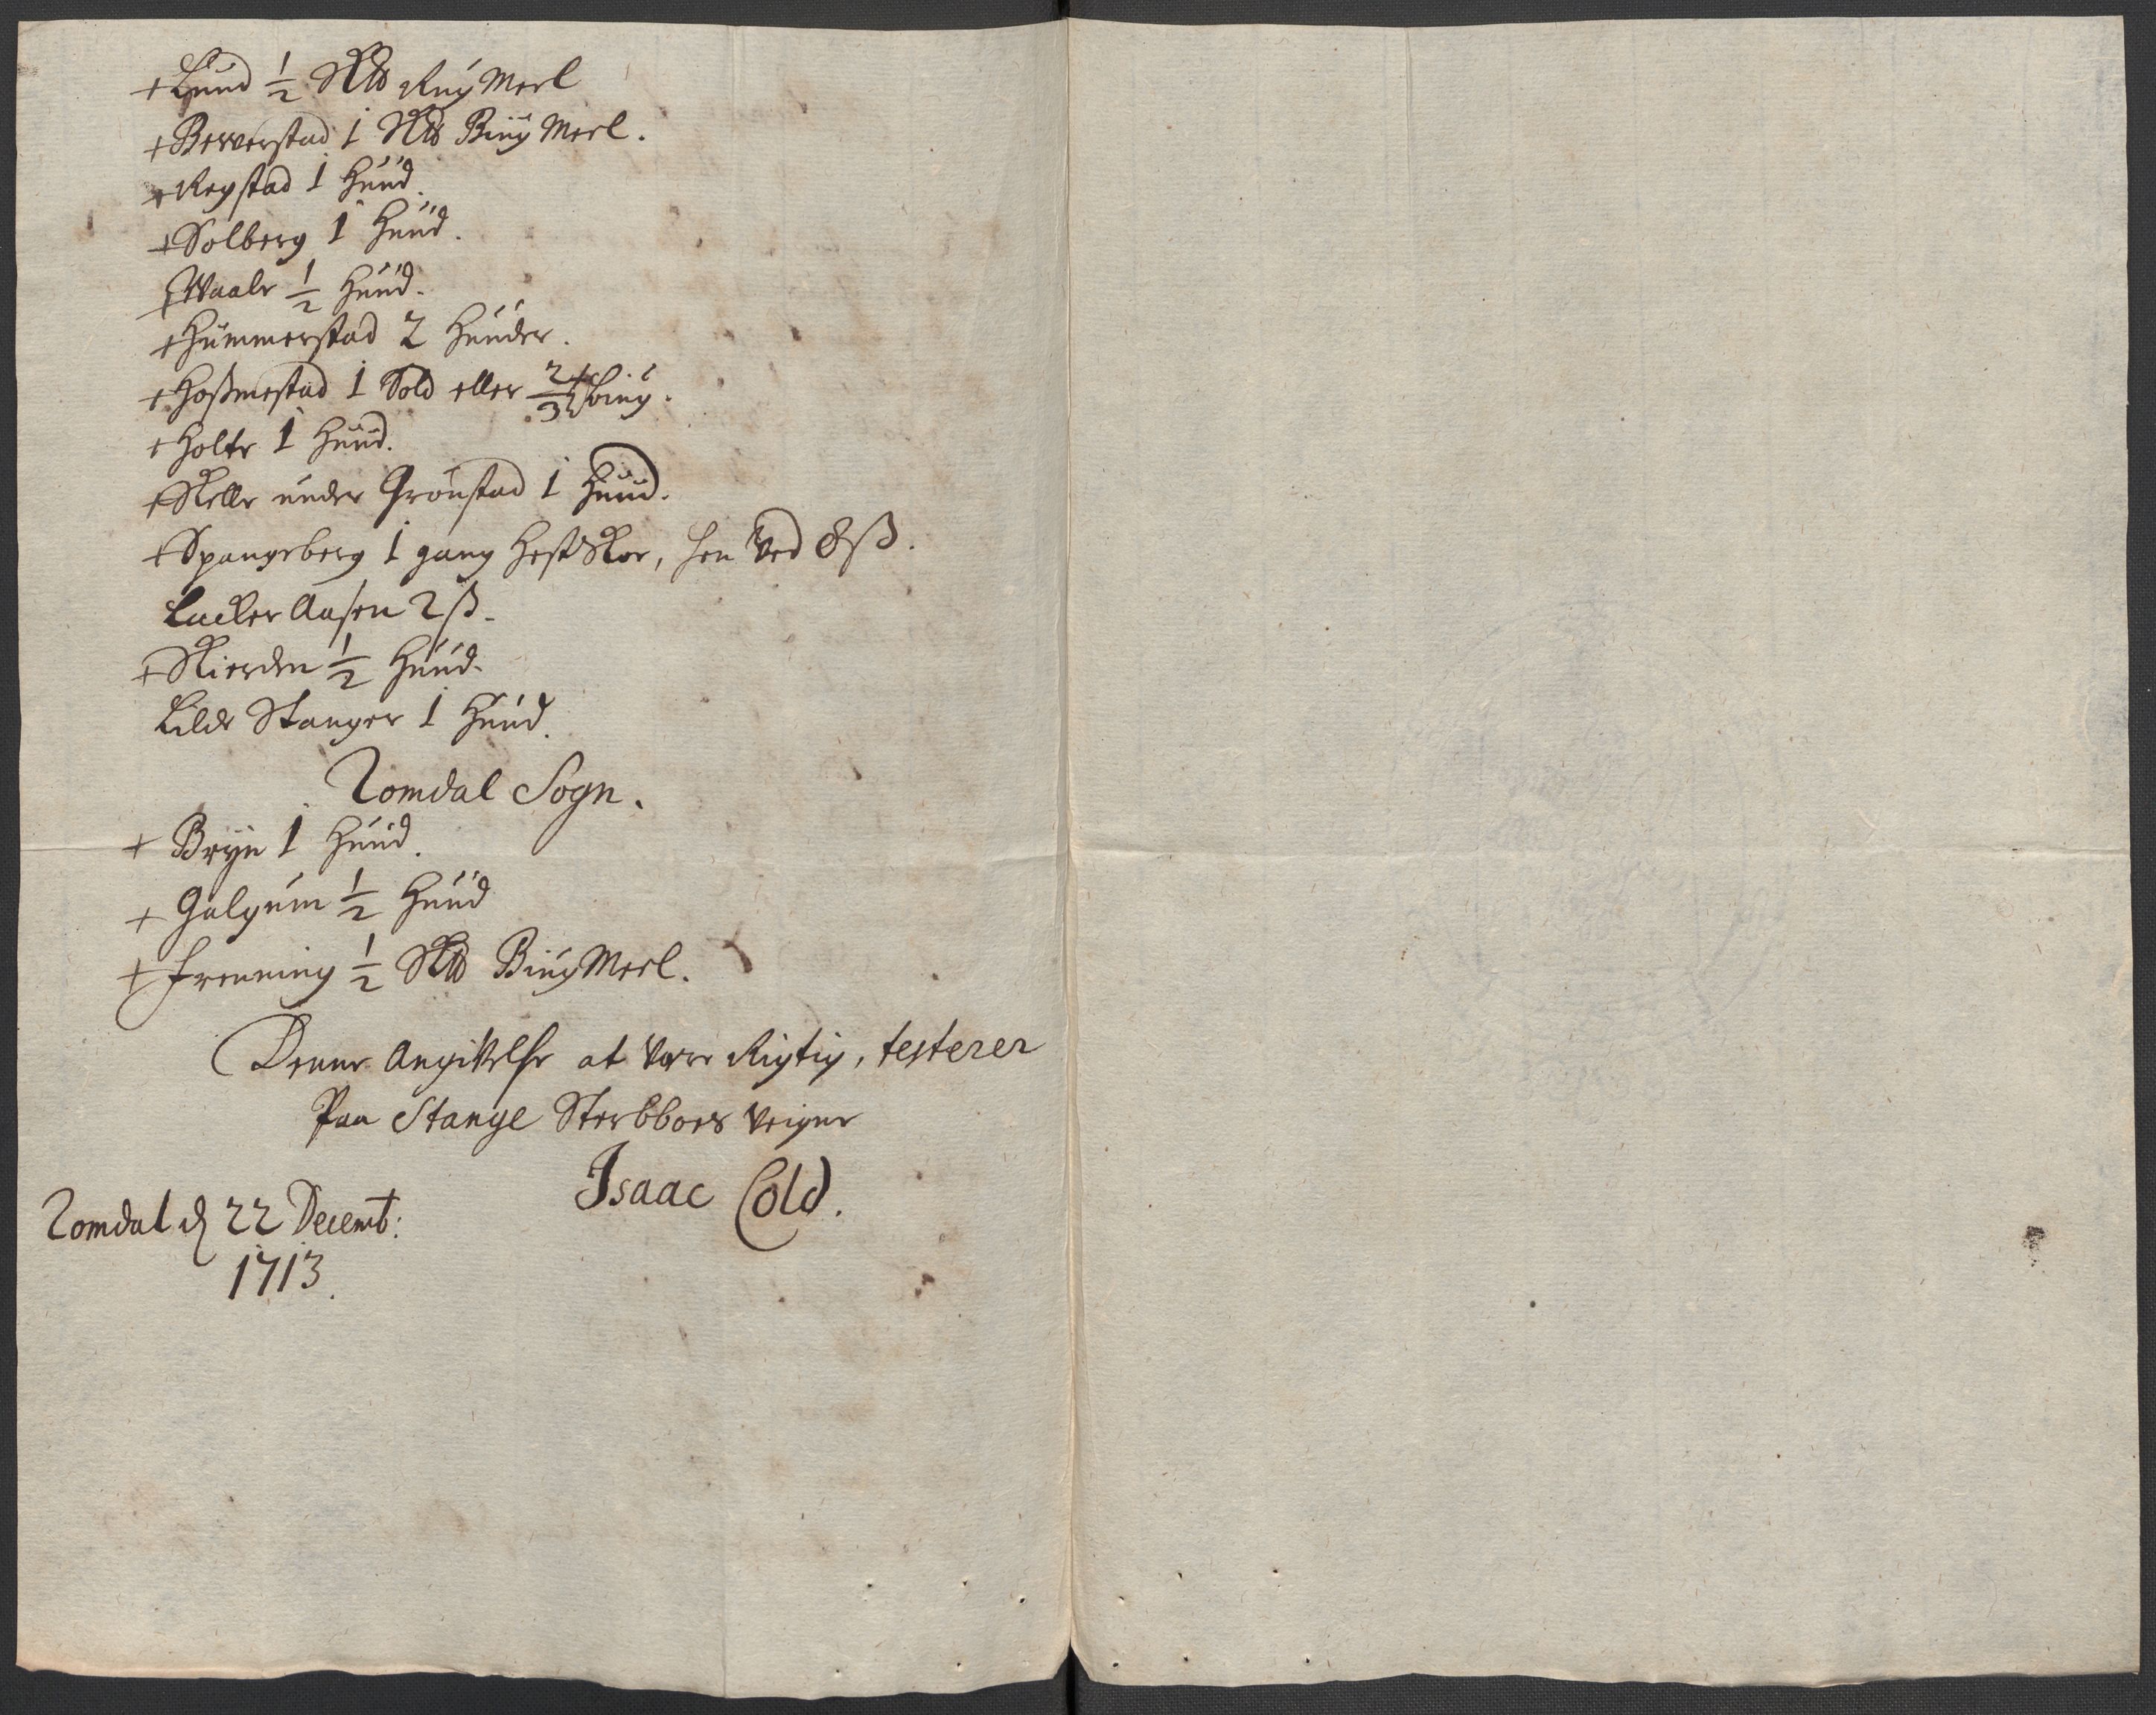 + Lund ½ Sk℔ Rug Meel
+ Berverstad 1 Sk℔ Biug Meel.
+ Regstad 1 Huud.
+ Solberg 1 Huud.
+ Waale ½ Huud.
+ Hummerstad 2 Huuder.
+ Hoßmestad 1 Sold eller 2/3 biug.
+ Holte 1 Huud.
+ Kelle under Grønstad 1 Huud.
+ Spangeberg 1 gang HesteSkoe, hen ved 8 ß.
Lacker Aasen 2 ß.
+ Kierden ½ Huud.
Lille Stanger 1 Huud.
Romdal Sogn.
+ Bryn 1 Huud.
+ Galgum ½ Huud
+ Frenning ½ Sk℔ Biug Meel.
Denne Angivelse at være Rigtig, testerer
Paa Stange Sterbboes Veigne
Isaac Cold.
Romdal d 22 Decemb:
1713.